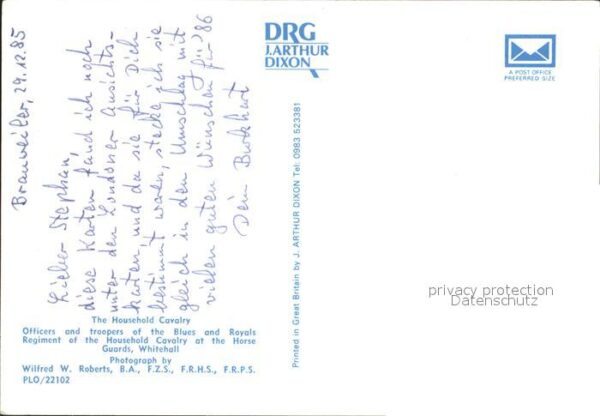 Brauweiler, 29.12.85
Lieber Stephan,
diese Karten fand ich noch
unter den Londoner Ansichts-
karten, und da sie für Dich
bestimmt waren, stecke ich sie
gleich in den Umschlag mit
vielen guten Wünschen für '86
Dein Burkhart
The Household Cavalry
Officers and troopers of the Blues and Royals
Regiment of the Household Cavalry at the Horse
Guards, Whitehall
Photograph by
Wilfred W. Roberts, B.A., F.Z.S., F.R.H.S., F.R.P.S.
PLO/22102
DRG
J.ARTHUR
DIXON
Printed in Great Britain by J. ARTHUR DIXON Tel: 0983 523381
A POST OFFICE
PREFERRED SIZE
privacy protection
Datenschutz